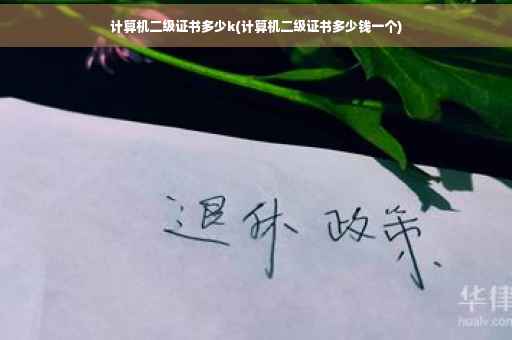 计算机二级证书多少k(计算机二级证书多少钱一个)
退休 政策
华律
hualv.com